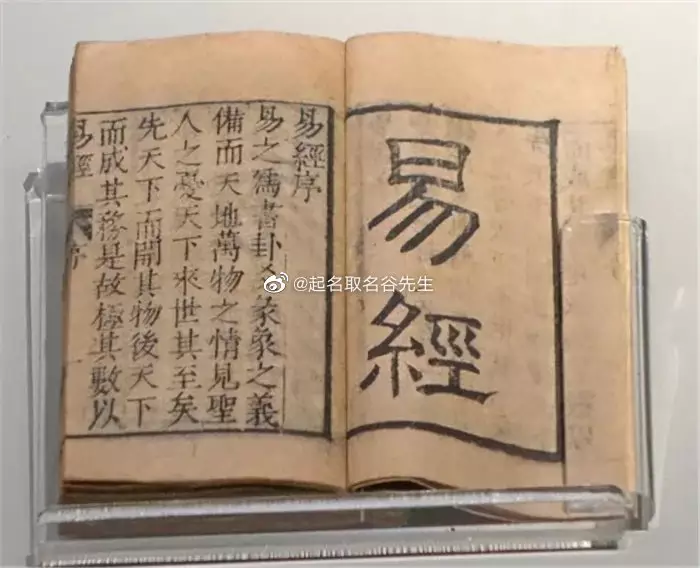 易經
易經序
易之爲書卦爻彖象之義
備而天地萬物之情見聖
人之憂天下來世其至矣
先天下而開其物後天下
而成其務是故極其數以
易經 序 一
@起名取名谷先生